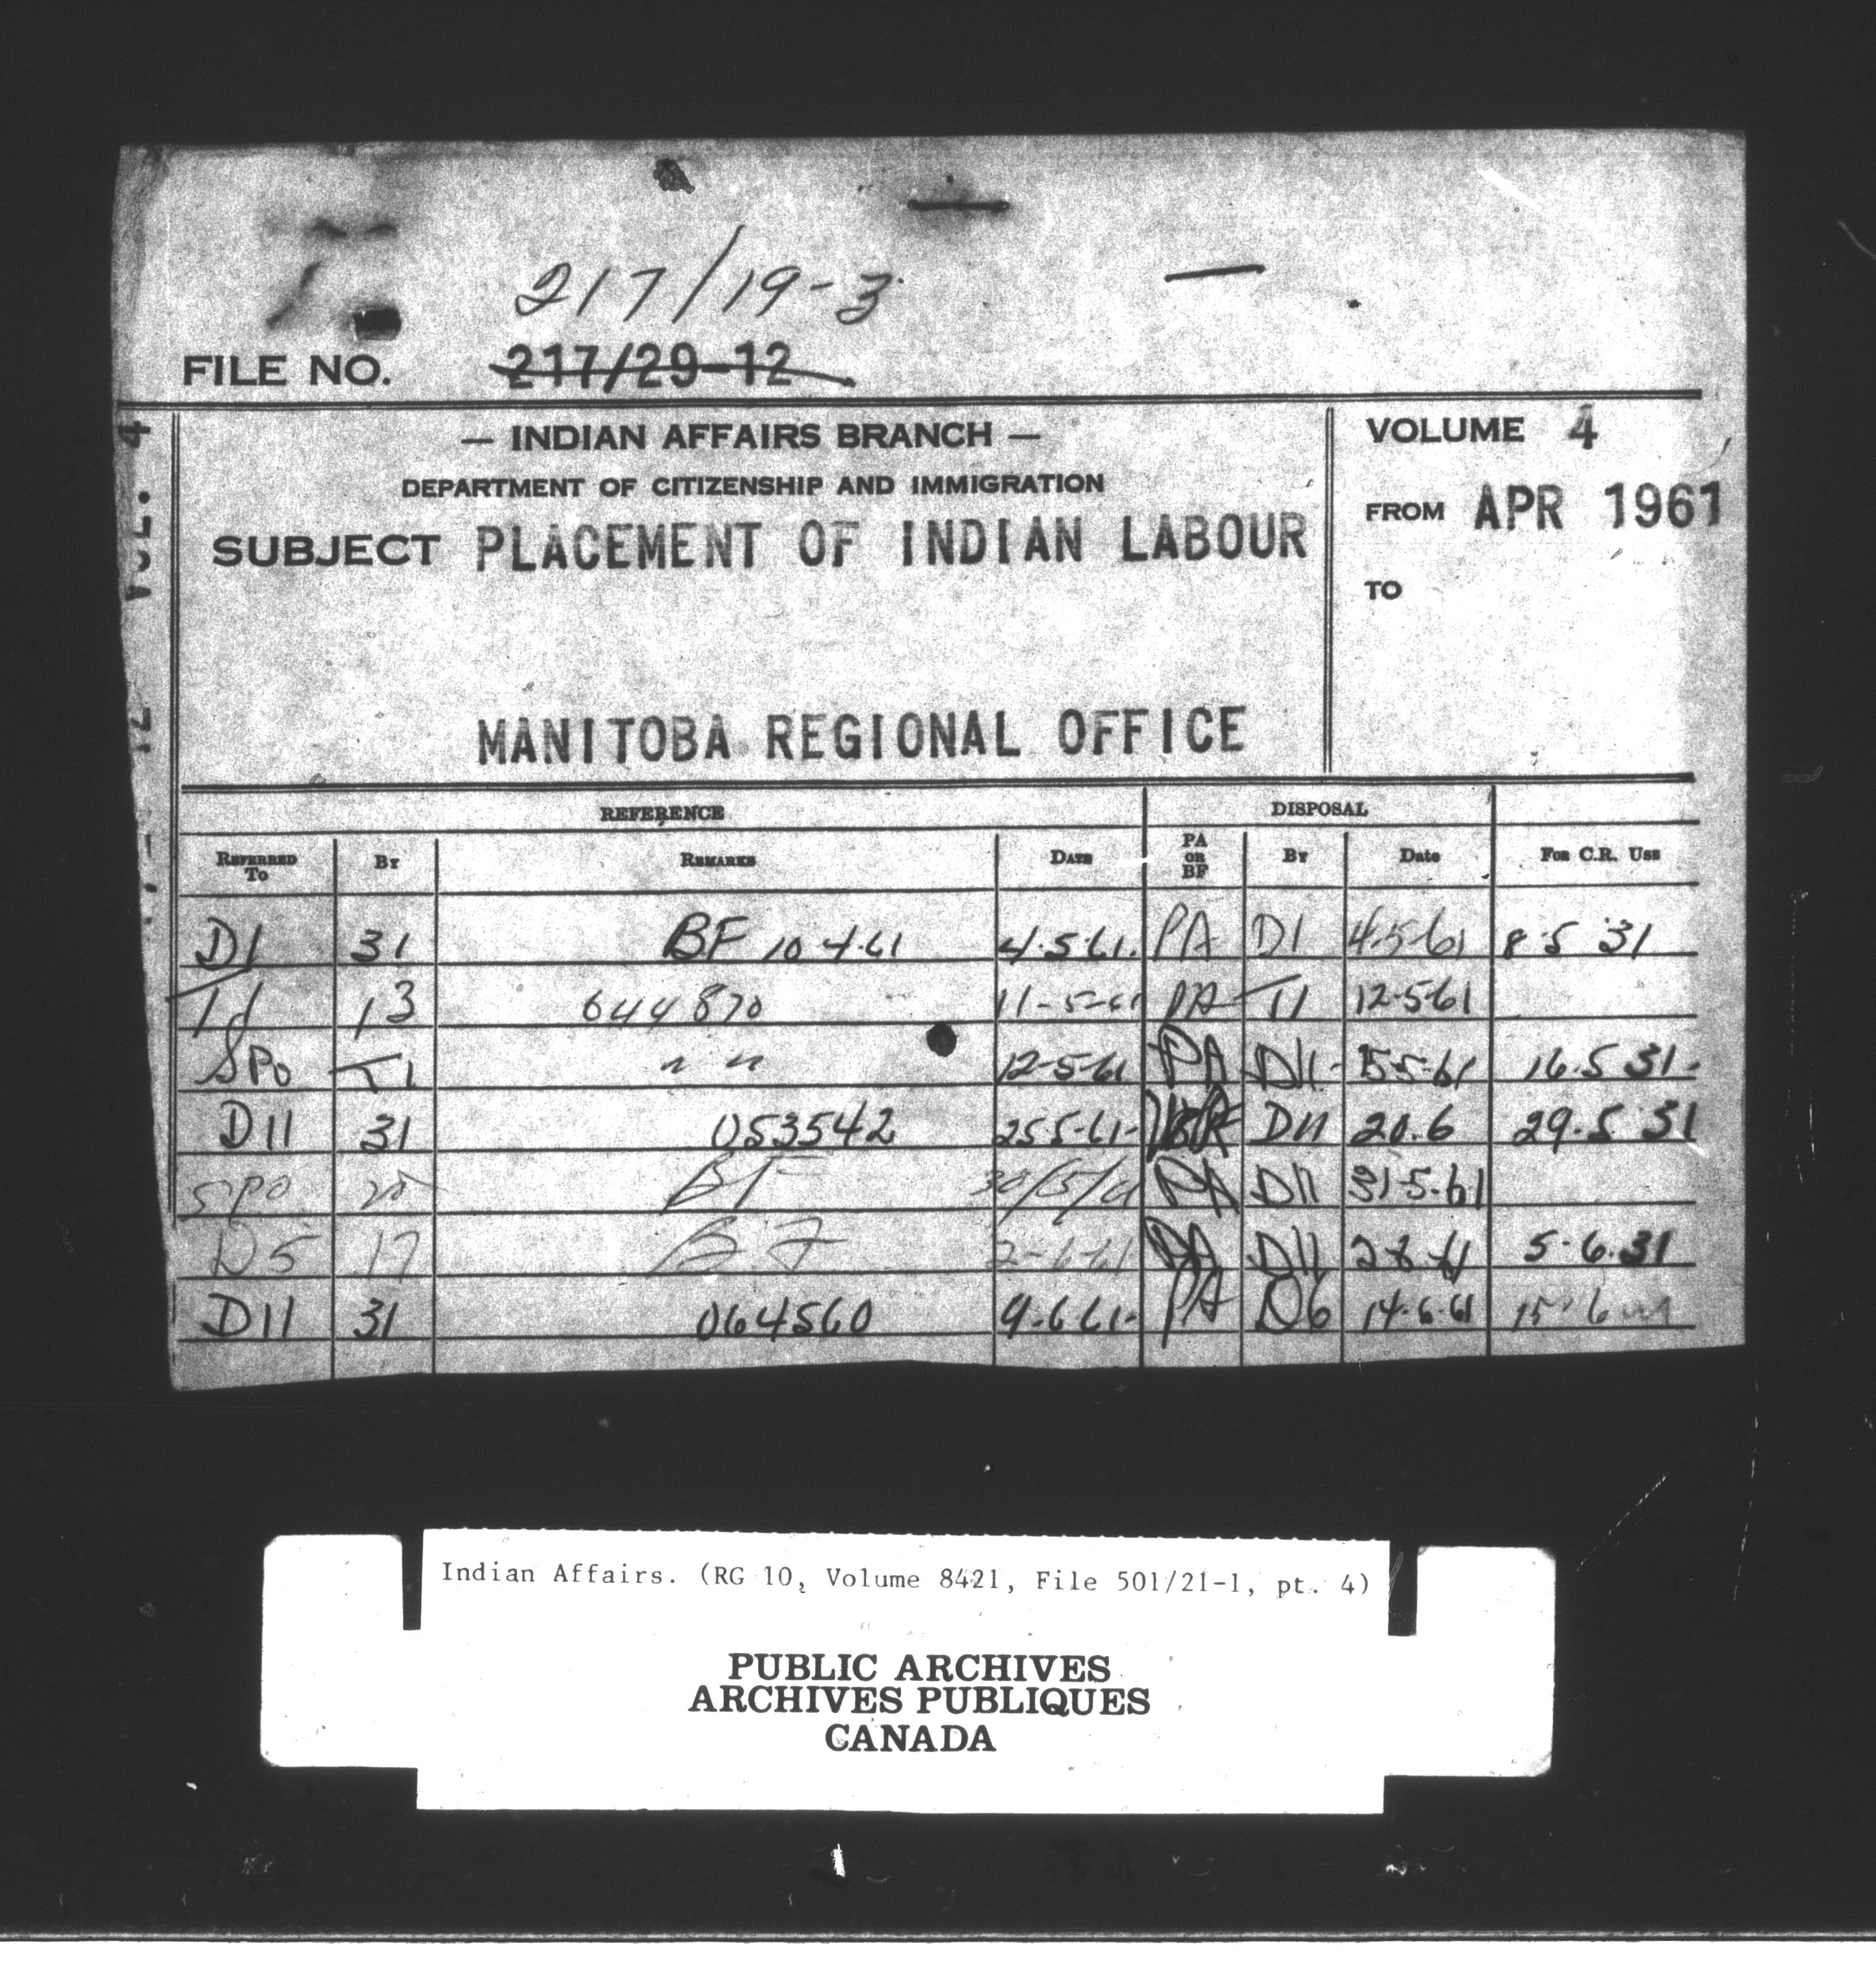 217/19-3
FILE NO. 217/29-12
— INDIAN AFFAIRS BRANCH —
DEPARTMENT OF CITIZENSHIP AND IMMIGRATION
SUBJECT PLACEMENT OF INDIAN LABOUR
MANITOBA REGIONAL OFFICE
VOLUME 4
FROM APR 1961
TO
VOL. 4
REFERENCE DISPOSAL
REFERRED TO BY REMARKS DATE PA OR BF BY Date FOR C.R. USE
D1 31 BF 10 4.61 4.5.61. PA D1 4.5.61 8.5 31
13 644870 11-5-61 PA T1 12.5.61
SPO T1 " " 12-5-61 PA D11. 15.5.61 16.5 31.
D11 31 053542 25.5.61- D11 20.6 29.5 31
SPO BF 30/5/61 PA D11 31-5-61
D5 17 BF 2-6-61 PA D11 5.6.31
D11 31 064560 9.6.61. PA D6 14.6.61 15.6
Indian Affairs. (RG 10, Volume 8421, File 501/21-1, pt. 4)
PUBLIC ARCHIVES
ARCHIVES PUBLIQUES
CANADA